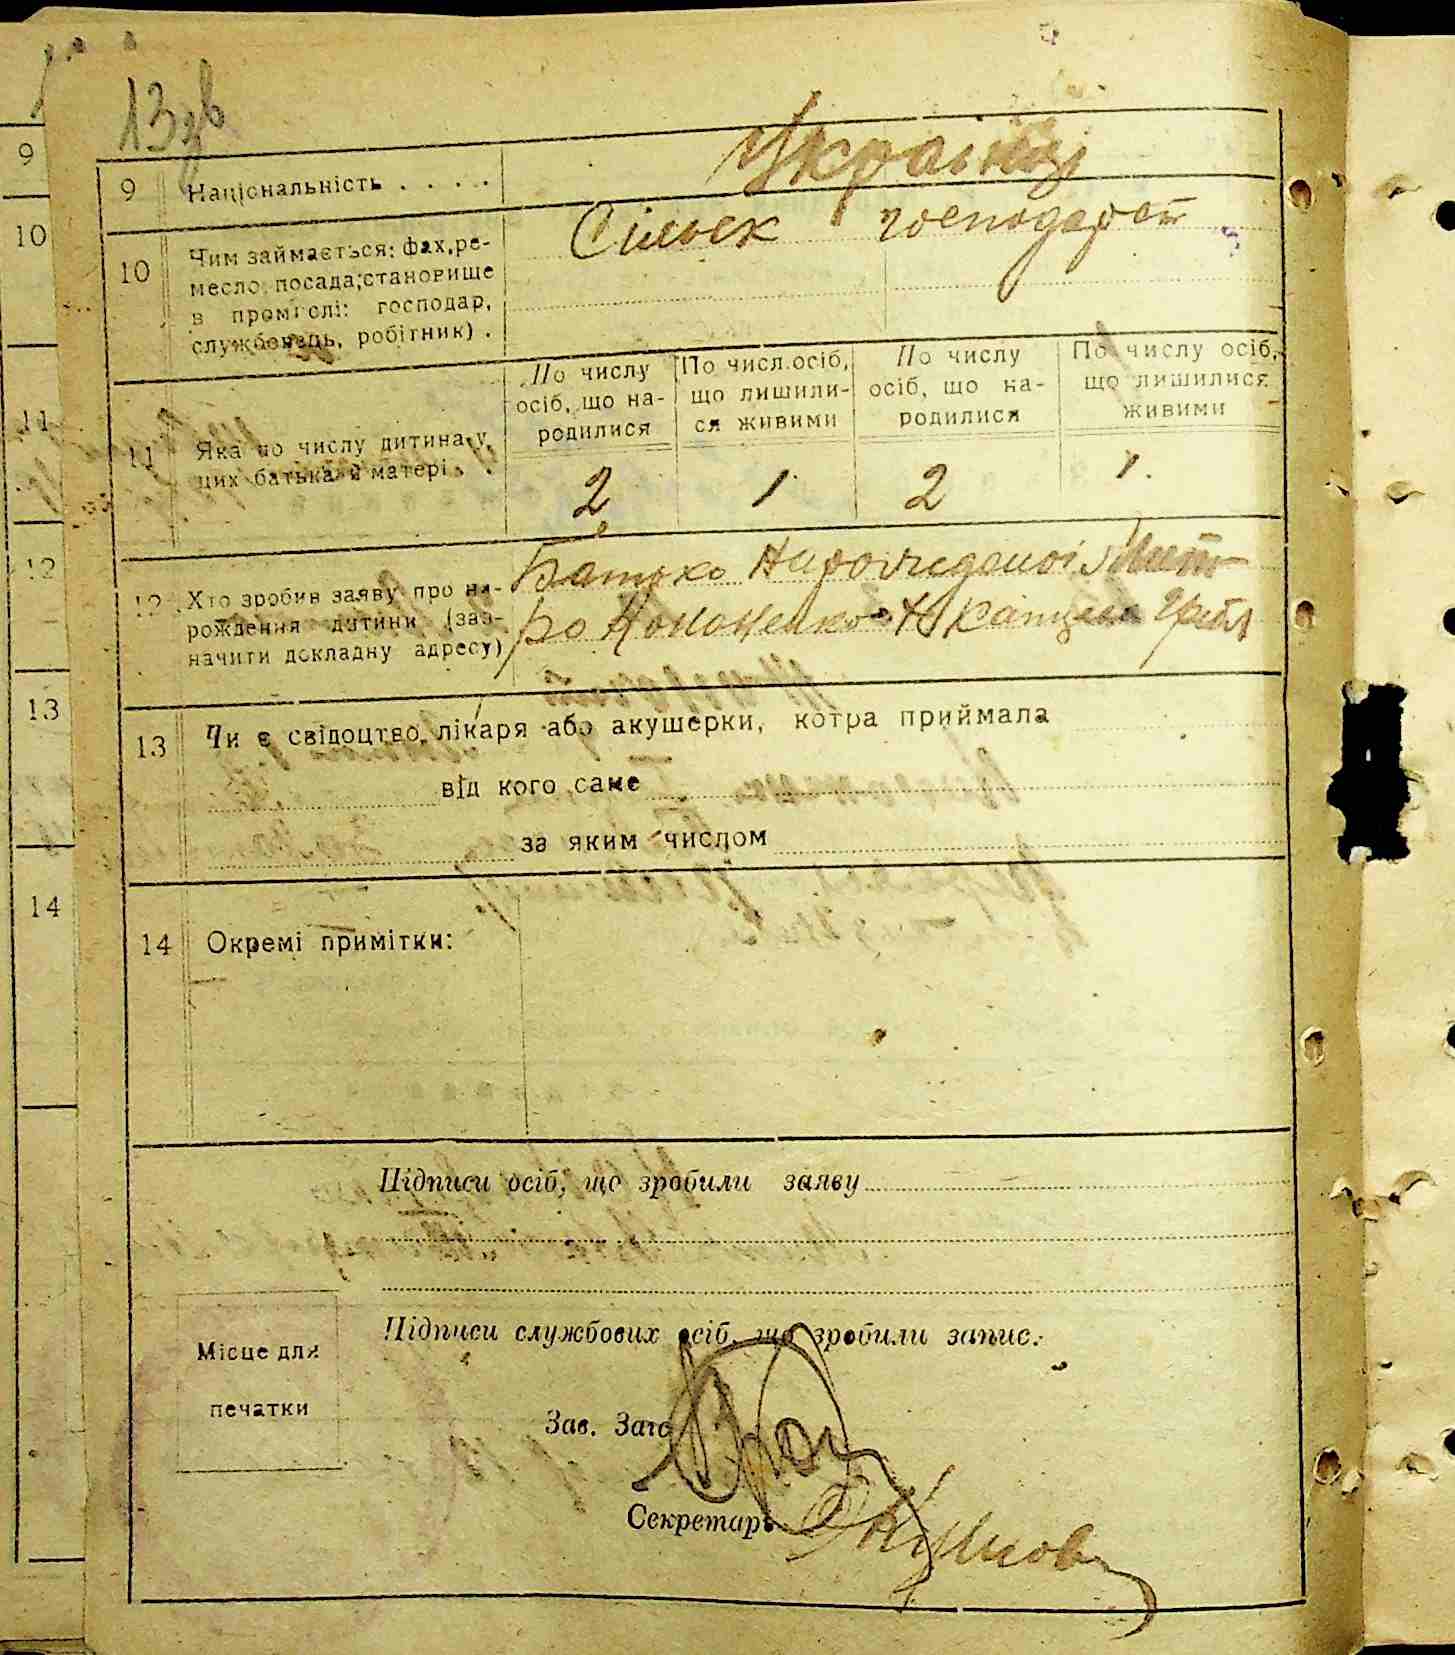 13зв
9
9 Національність . . . . Українці
10
10 Чим займається: фах, ре-
месло, посада; становище
в промислі: господар,
службовець, робітник) .
Сільск господарст
По числу
осіб, що на-
родилися
По числ. осіб,
що лишили-
ся живими
По числу
осіб, що на-
родилися
По числу осіб,
що лишилися
живими
11
11 Яка по числу дитина у
цих батька й матері . .
2 1 2 1.
12
12 Хто зробив заяву про на-
рождення дитини (заз-
начити докладну адресу)
Батько Нарожденої Мит
ро Кононенко
13
13 Чи є свідоцтво лікаря або акушерки, котра приймала
від кого саме
за яким числом
14
14 Окремі примітки:
Підписи осіб, що зробили заяву
Місце для
печатки
Підписи службових осіб, що зробили запис:
Зав. Заго
Секретарь